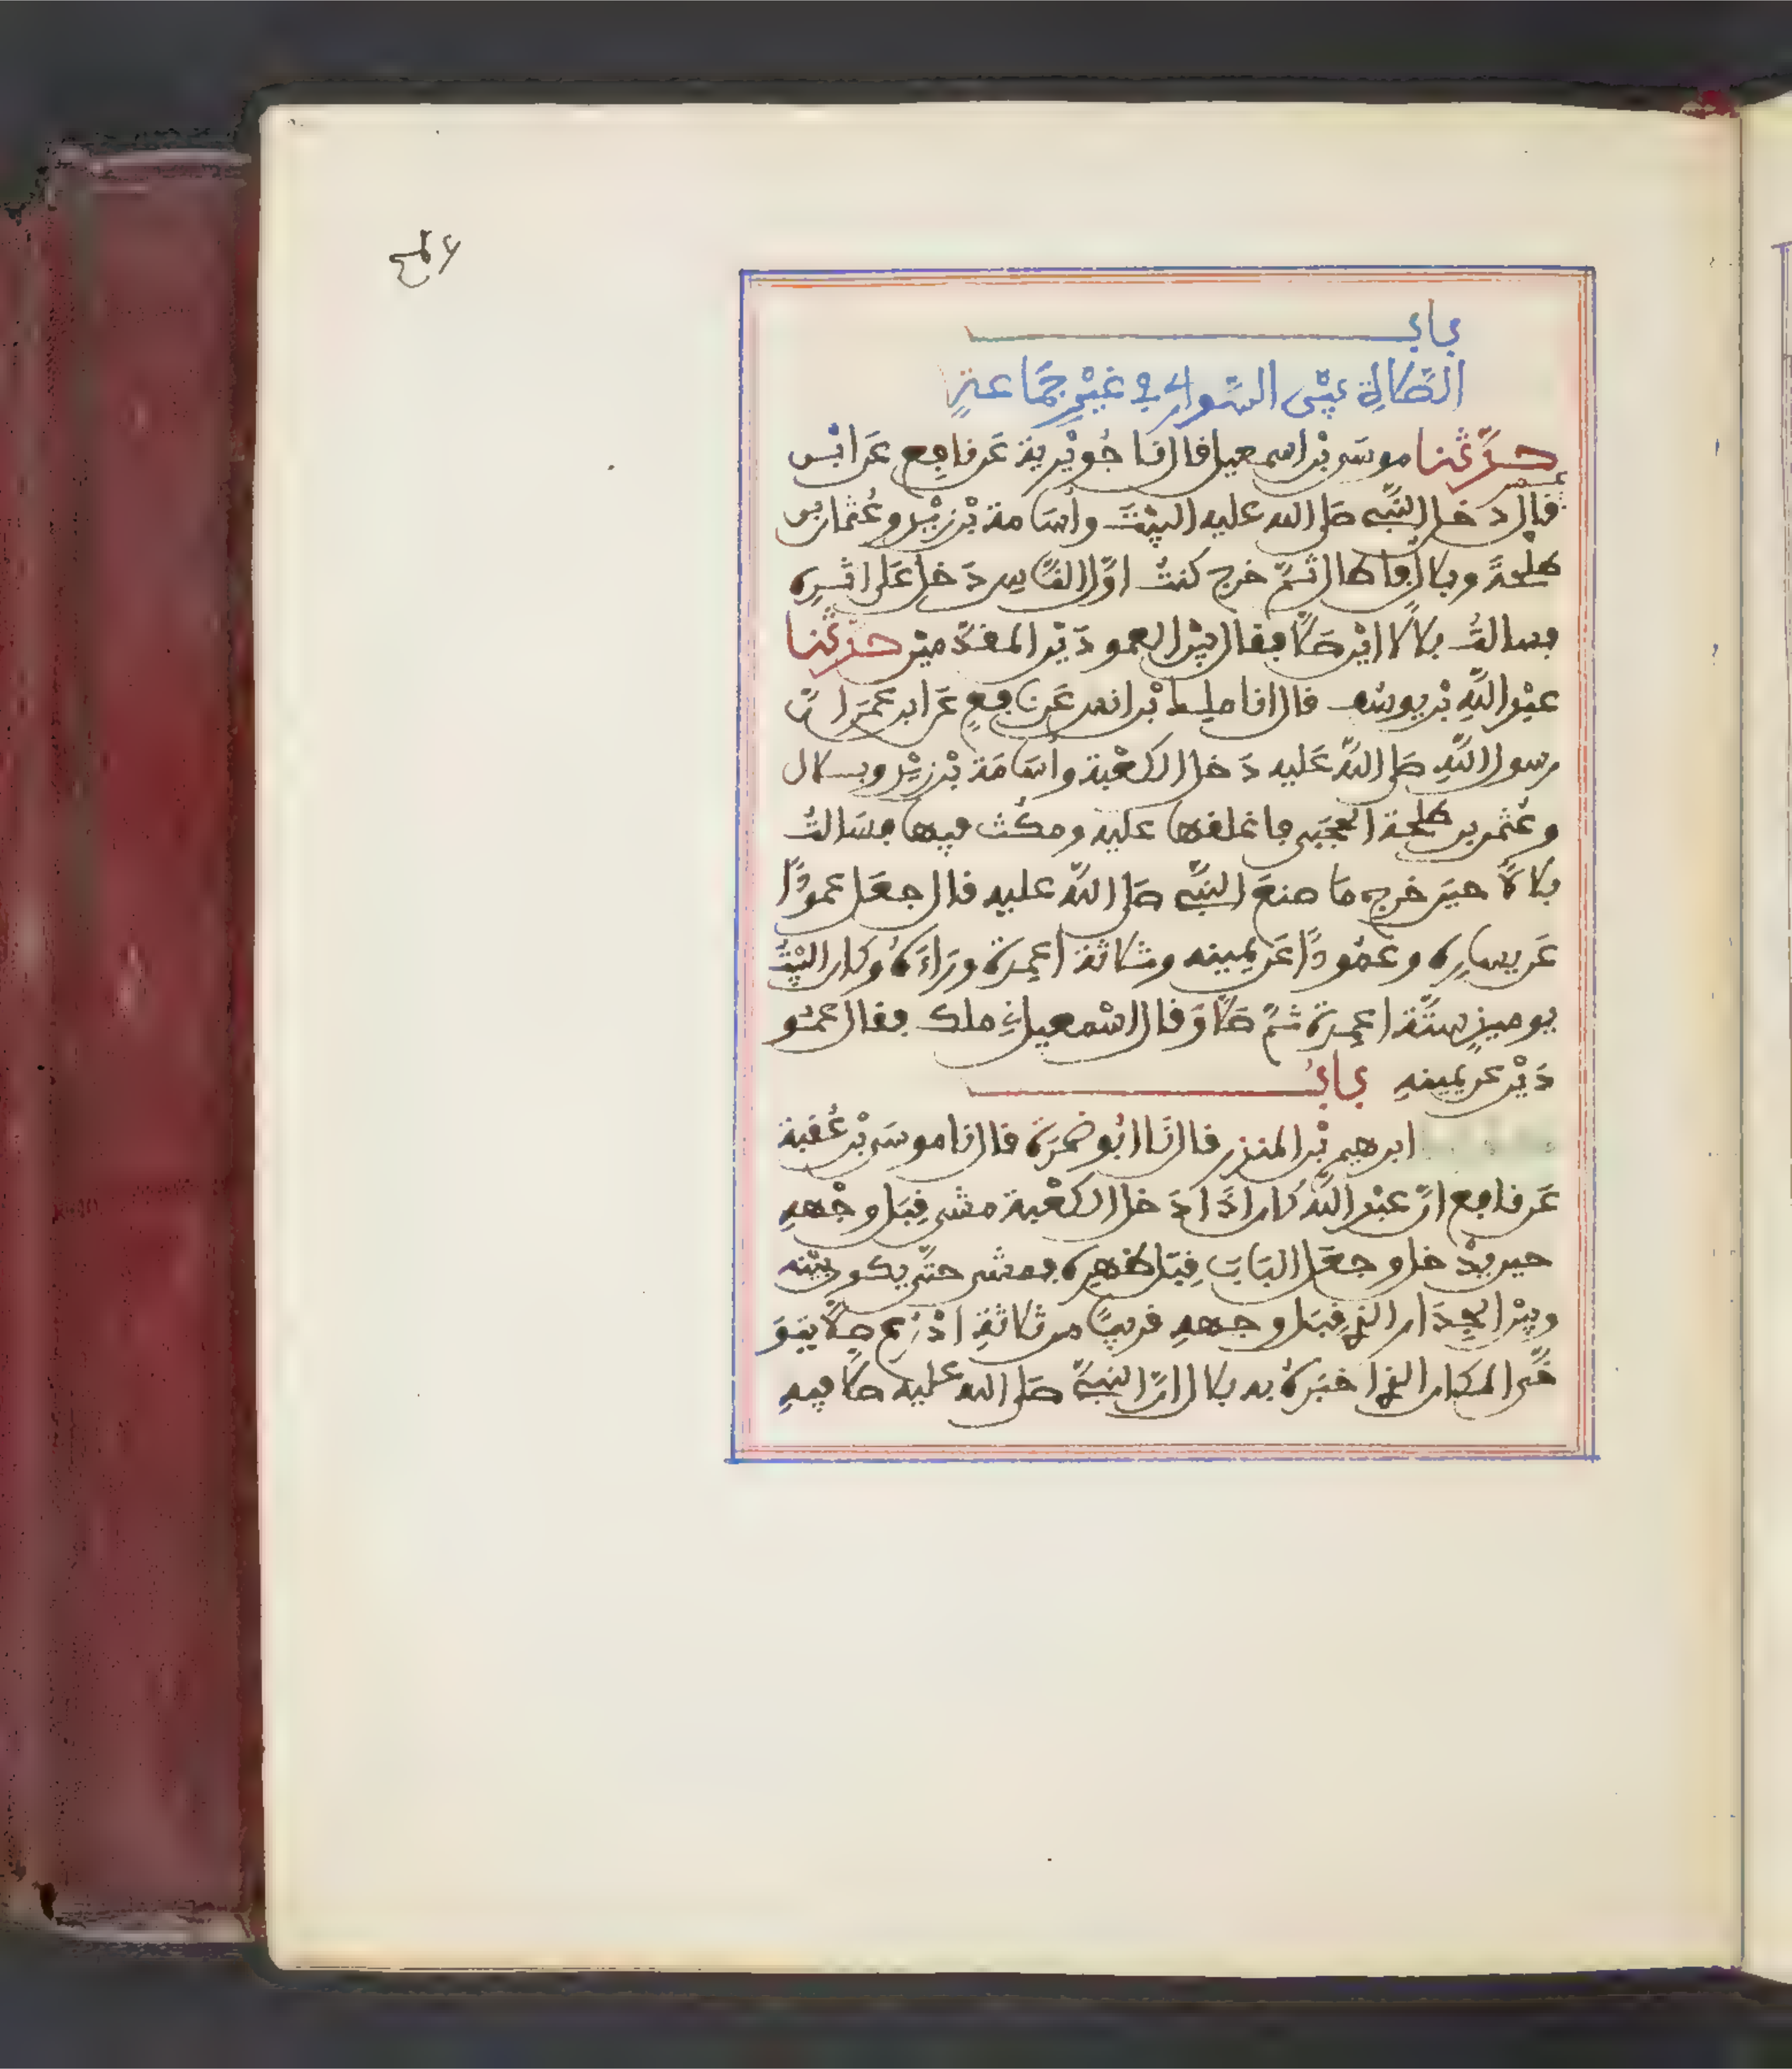 باب
الصلاة بين السواري في غير جماعة
حدثنا موسى بن اسمعيل قال نا جويرية عن نافع عن ابن
عمر قال دخل النبي صلى الله عليه البيت وأسامة بن زيد وعثمان بن
طلحة وبلال فاطال ثم خرج كنت اول الناس دخل على اثره
فسالت بلالا اين صلى فقال بين العمودين المقدمين حدثنا
عبد الله بن يوسف قال انا ملك بن انس عن نافع عن ابن عمر ان
رسول الله صلى الله عليه دخل الكعبة وأسامة بن زيد وبلال
وعثمن بن طلحة الحجبي فاغلقها عليه ومكث فيها فسالت
بلالا حين خرج ما صنع النبي صلى الله عليه قال جعل عمودا
عن يساره وعمودا عن يمينه وثلاثة اعمدة وراءه وكان البيت
يوميذ ستة اعمدة ثم صلى وقال اسمعيل ملك فقال عمو
دين عن يمينه باب
ابرهيم بن المنذر قال نا ابو ضمرة قال نا موسى بن عقبة
عن نافع ان عبد الله كان اذا دخل الكعبة مشى قبل وجهه
حين يدخل وجعل الباب قبل ظهره فمشى حتى يكون بينه
وبين الجدار الذي قبل وجهه قريبا من ثلاثة اذرع صلى يتو
خى المكان الذي اخبره به بلال ان النبي صلى الله عليه صلى فيه